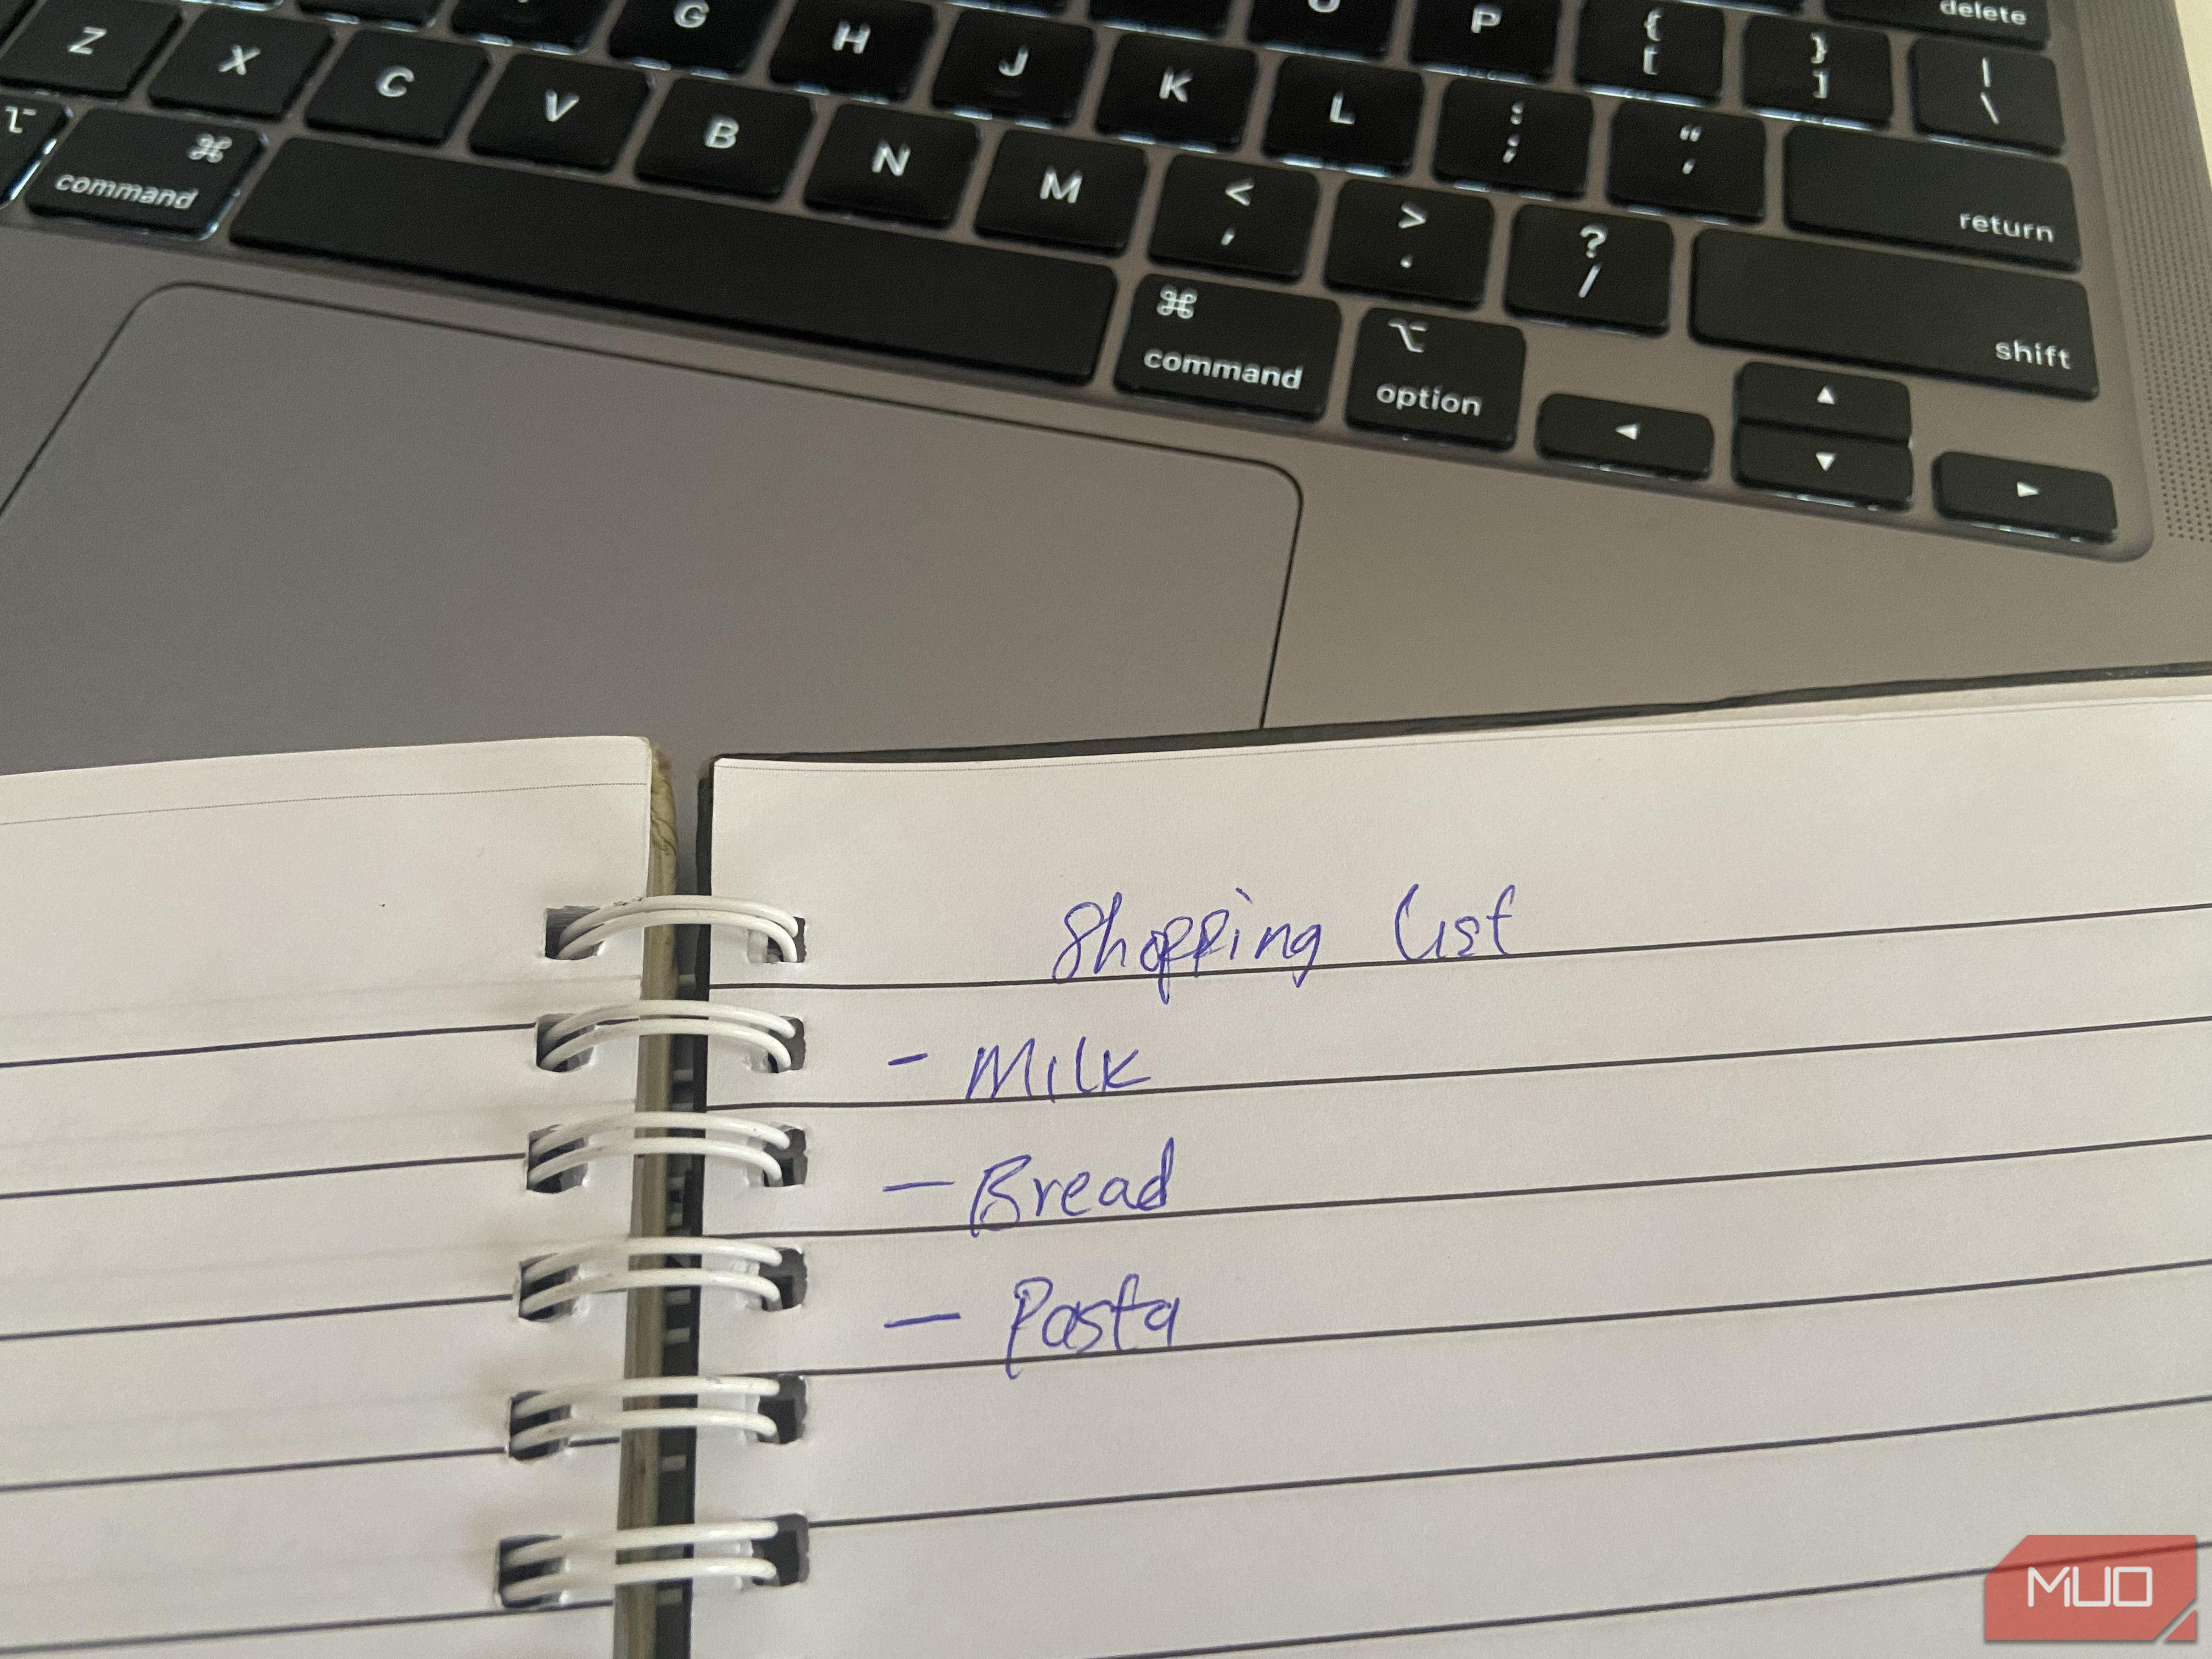 delete
G H J K L O P { [ } ] | \
Z X C V B N M < , > . ? / : ; " ' return
⌘ command
⌘ command ⌥ option shift
◄ ▲ ▼ ►
Shopping List
- Milk
- Bread
- Pasta
MUO